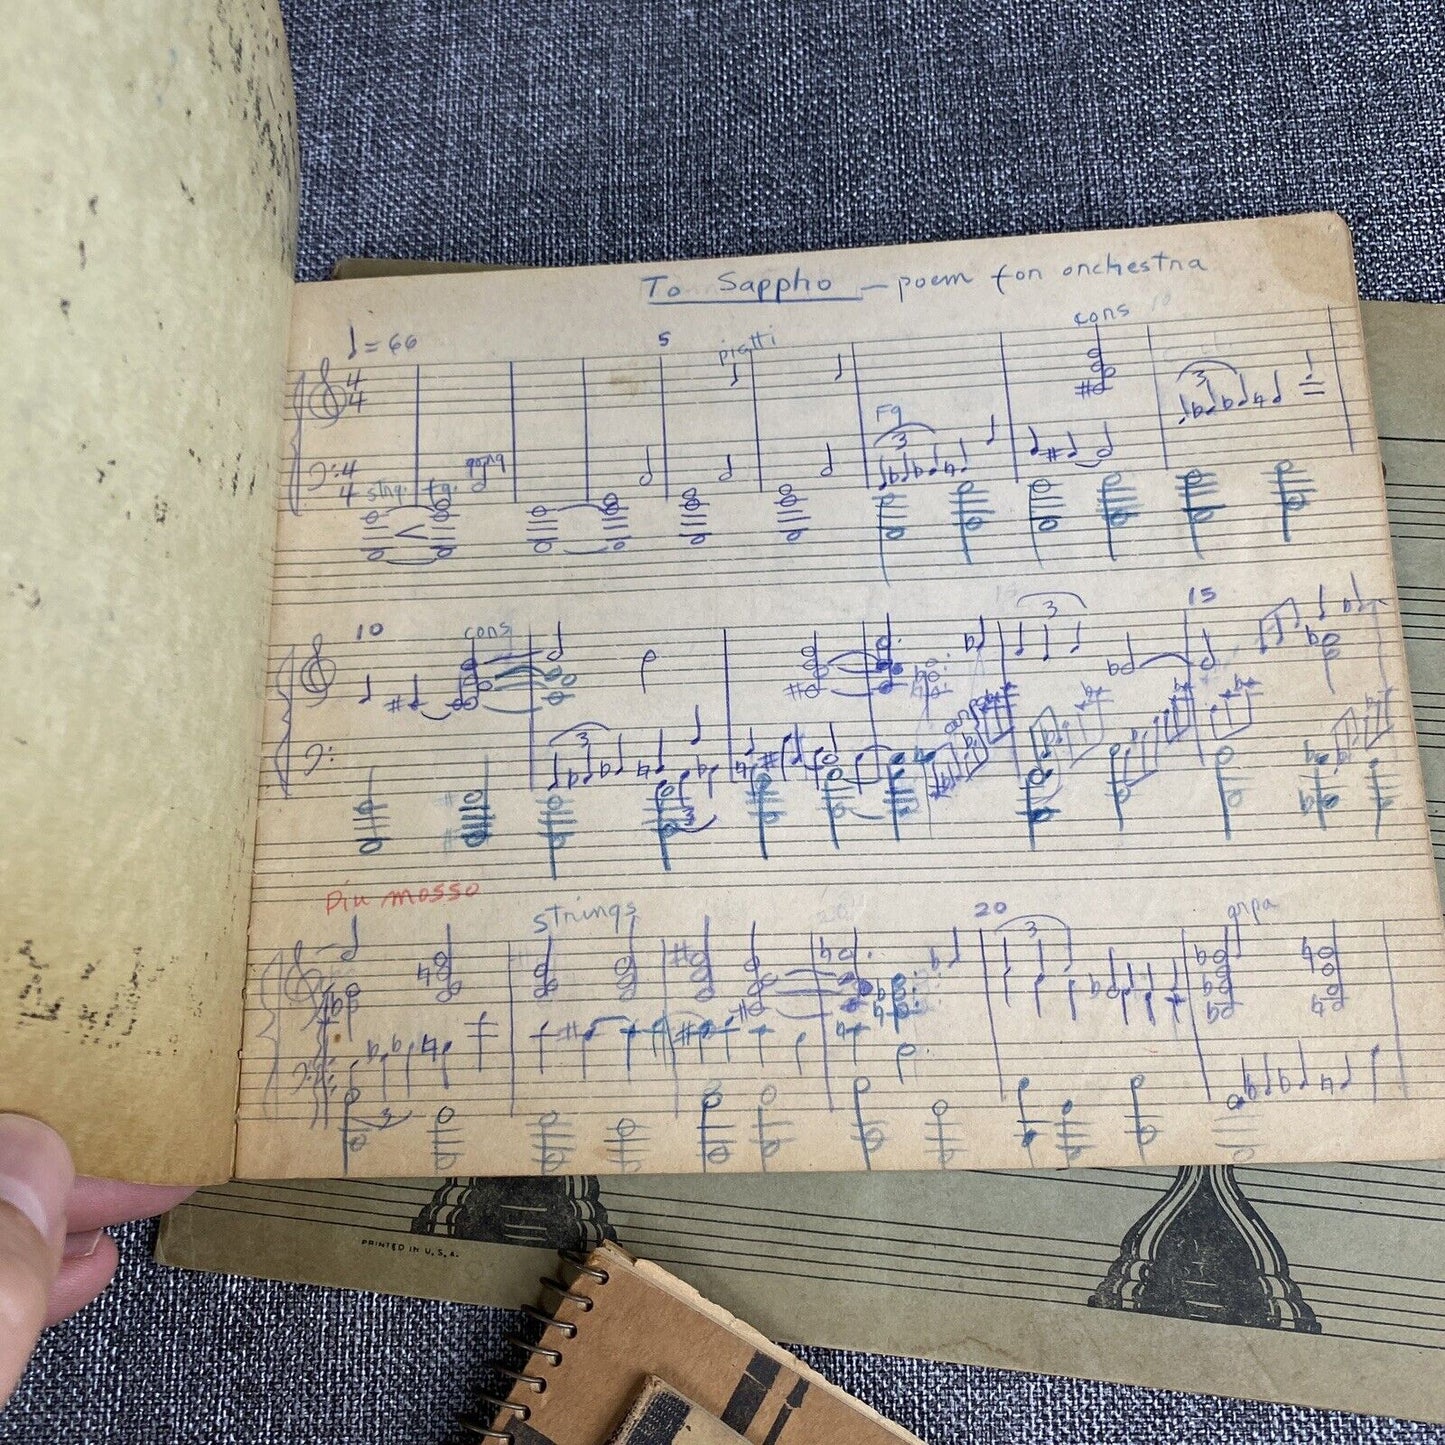 To Sappho — poem for orchestra
♩ = 66
5
piatti
cons
4
4
Fg
3
3
4
4
strg. fg. gong
10
cons
3
15
3
3
piu mosso
strings
20
3
arpa
3
PRINTED IN U.S.A.